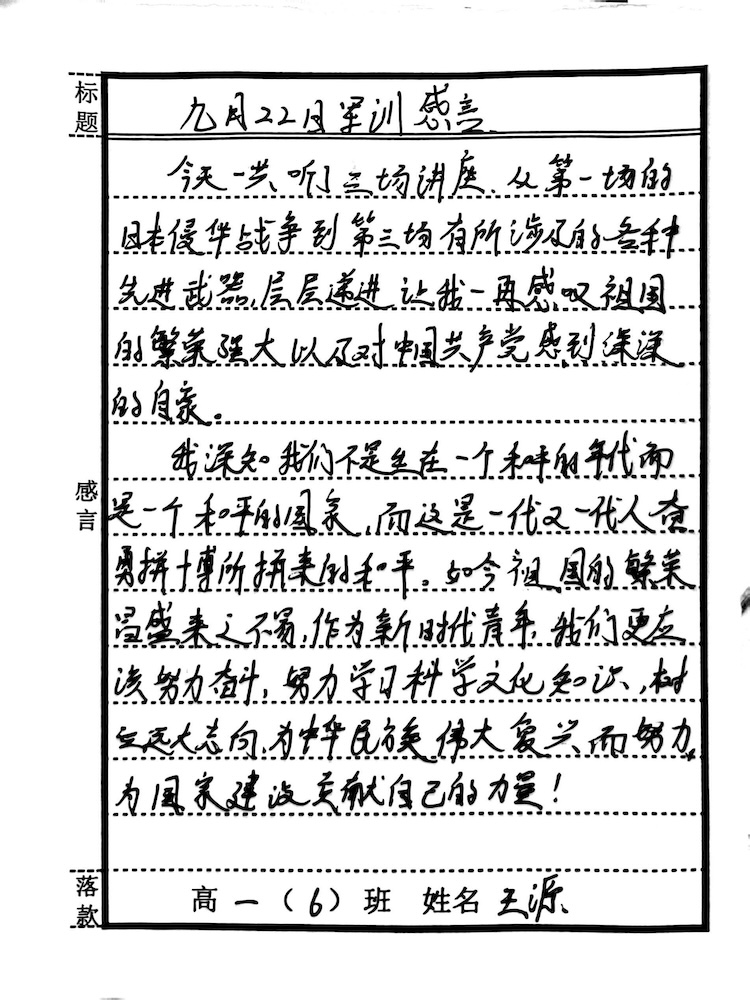 标题
九月22日军训感言
今天一共听了三场讲座.从第一场的
日本侵华战争到第三场有所涉及的各种
先进武器,层层递进,让我一再感叹祖国
的繁荣强大以及对中国共产党感到深深
的自豪。
我深知我们不是生在一个和平的年代而
感言
是一个和平的国家,而这是一代又一代人奋
勇拼搏所拼来的和平。如今祖国的繁荣
昌盛来之不易,作为新时代青年,我们更应
该努力奋斗,努力学习科学文化知识,树
立远大志向,为中华民族伟大复兴而努力,
为国家建设贡献自己的力量!
落款
高一(6)班 姓名 王源